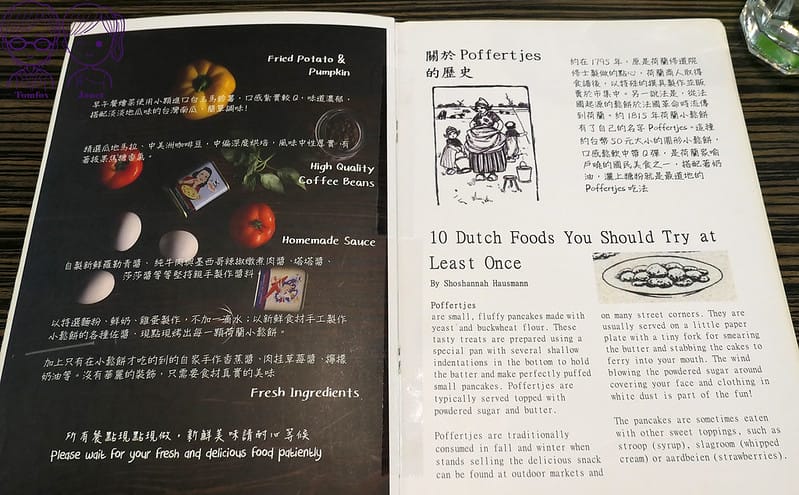 Tomfox Jouet
Fried Potato &
Pumpkin
早午餐燴菜使用小顆進口白玉馬鈴薯，口感紮實較Q，味道濃郁，
搭配淡淡地瓜味的台灣南瓜，簡單調味！
精選瓜地馬拉、中美洲咖啡豆，中偏深度烘焙，風味中性厚實，有
著換果馬糖香氣。
High Quality
Coffee Beans
Homemade Sauce
自製新鮮羅勒青醬、純牛肉與墨西哥辣椒燉煮肉醬、塔塔醬、
莎莎醬等等堅持親手製作醬料
以特選麵粉、鮮奶、雞蛋製作，不加一滴水；以新鮮食材手工製作
小鬆餅的各種佐醬，現點現烤出每一顆荷蘭小鬆餅。
加上只有在小鬆餅才吃的到的自家手作香蕉醬、肉桂草莓醬、檸檬
奶油等。沒有華麗的裝飾，只需要食材真實的美味
Fresh Ingredients
所有餐點現點現做，新鮮美味請耐心等候
Please wait for your fresh and delicious food patiently
關於 Poffertjes
的歷史
約在1795年，原是荷蘭修道院
修士製做的點心，荷蘭商人取得
食譜後，以特殊的模具製作並販
賣於市集中。另一說法是，從法
國起源的鬆餅於法國革命時流傳
到荷蘭。約1815年荷蘭小鬆餅
有了自己的名字Poffertjes。這種
約台幣50元大小的圓形小鬆餅，
口感鬆軟中帶Q彈，是荷蘭家喻
戶曉的國民美食之一，搭配著奶
油，灑上糖粉就是最道地的
Poffertjes吃法
10 Dutch Foods You Should Try at
Least Once
By Shoshannah Hausmann
Poffertjes
are small, fluffy pancakes made with
yeast and buckwheat flour. These
tasty treats are prepared using a
special pan with several shallow
indentations in the bottom to hold
the batter and make perfectly puffed
small pancakes. Poffertjes are
typically served topped with
powdered sugar and butter.
Poffertjes are traditionally
consumed in fall and winter when
stands selling the delicious snack
can be found at outdoor markets and
on many street corners. They are
usually served on a little paper
plate with a tiny fork for smearing
the butter and stabbing the cakes to
ferry into your mouth. The wind
blowing the powdered sugar around
covering your face and clothing in
white dust is part of the fun!
The pancakes are sometimes eaten
with other sweet toppings, such as
stroop (syrup), slagroom (whipped
cream) or aardbeien (strawberries).